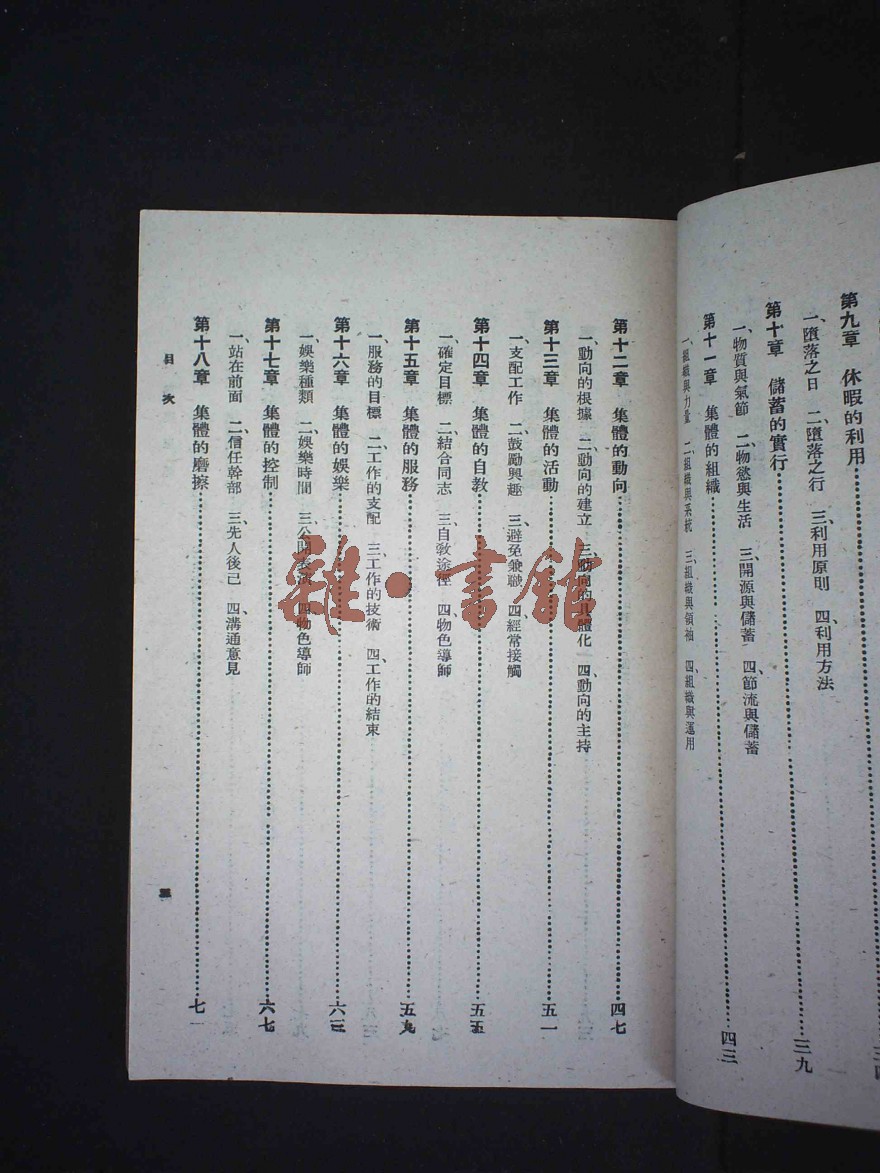 第九章　休暇的利用……
一、墮落之日　二、墮落之行　三、利用原則　四、利用方法
第十章　儲蓄的實行……三九
一、物質與氣節　二、物慾與生活　三、開源與儲蓄　四、節流與儲蓄
第十一章　集體的組織……四三
一、組織與力量　二、組織與系統　三、組織與領袖　四、組織與運用
第十二章　集體的動向……四七
一、動向的根據　二、動向的建立　三、動向的具體化　四、動向的主持
第十三章　集體的活動……五一
一、支配工作　二、鼓勵興趣　三、避免兼職　四、經常接觸
第十四章　集體的自教……五五
一、確定目標　二、結合同志　三、自教途徑　四、物色導師
第十五章　集體的服務……五九
一、服務的目標　二、工作的支配　三、工作的技術　四、工作的結束
第十六章　集體的娛樂……六三
一、娛樂種類　二、娛樂時間　三、公開表演　四、物色導師
第十七章　集體的控制……六七
一、站在前面　二、信任幹部　三、先人後己　四、溝通意見
第十八章　集體的磨擦……七一
目次
三
雜·書館